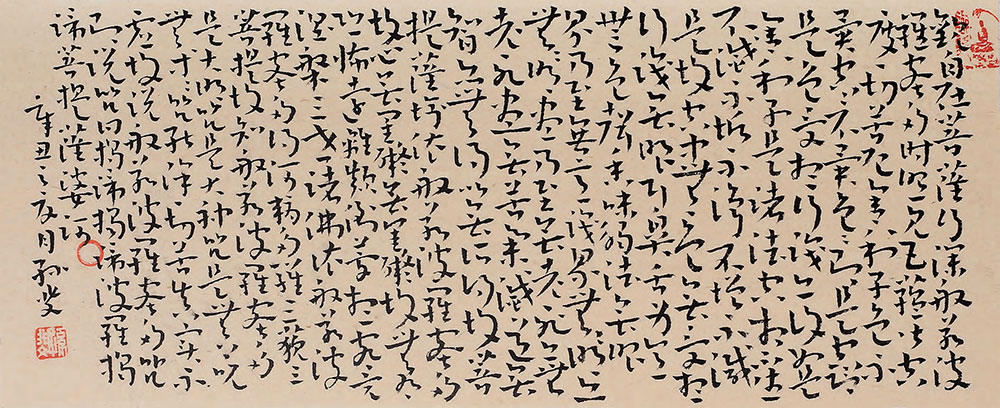 觀自在菩薩行深般若波
羅蜜多時照見五蘊皆空
度一切苦厄舍利子色不
異空空不異色色即是空空即
是色受想行識亦復如是
舍利子是諸法空相不生
不滅不垢不淨不增不減
是故空中無色無受想
行識無眼耳鼻舌身意
無色聲香味觸法無眼
界乃至無意識界無無明亦
無無明盡乃至無老死亦無
老死盡無苦集滅道無
智亦無得以無所得故菩
提薩埵依般若波羅蜜多
故心無罣礙無罣礙故無有
恐怖遠離顛倒夢想究竟
涅槃三世諸佛依般若波
羅蜜多故得阿耨多羅三藐三
菩提故知般若波羅蜜多
是大明咒是大神咒是無上咒
無等等咒能除一切苦真實不
虛故說般若波羅蜜多咒
即說咒曰揭諦揭諦波羅揭
諦菩提薩婆訶
辛丑之夏月